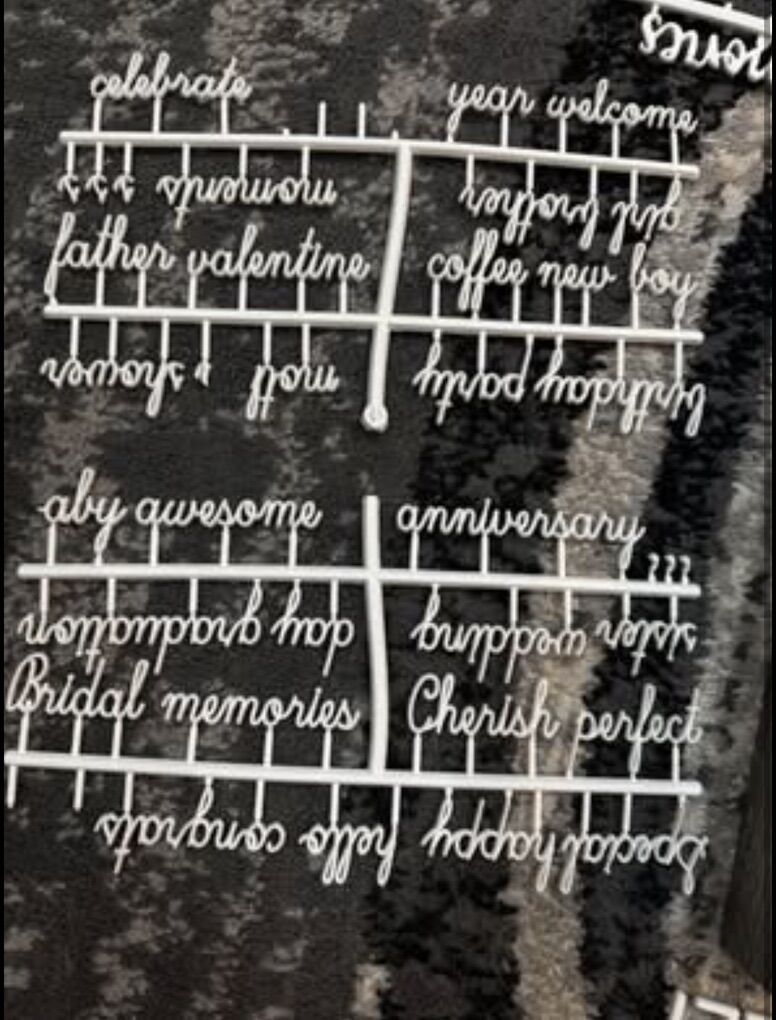 celebrate year welcome
girl brother moments s s s
father valentine coffee new boy
birthday party shower
aby awesome anniversary ???
sister wedding day graduation
Bridal memories Cherish perfect
Special happy hello congrats